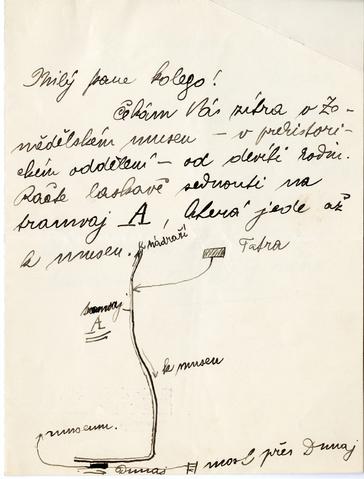 Milý pane kolego!
Čekám Vás zítra v Ze-
mědělském museu – v prehistori-
ckém oddělení – od devíti hodin.
Račte laskavě sednouti na
tramvaj A, která jede až
k museu.
nádraží
Tatra
tramvaj
A
k museu
museum.
Dunaj
most přes Dunaj